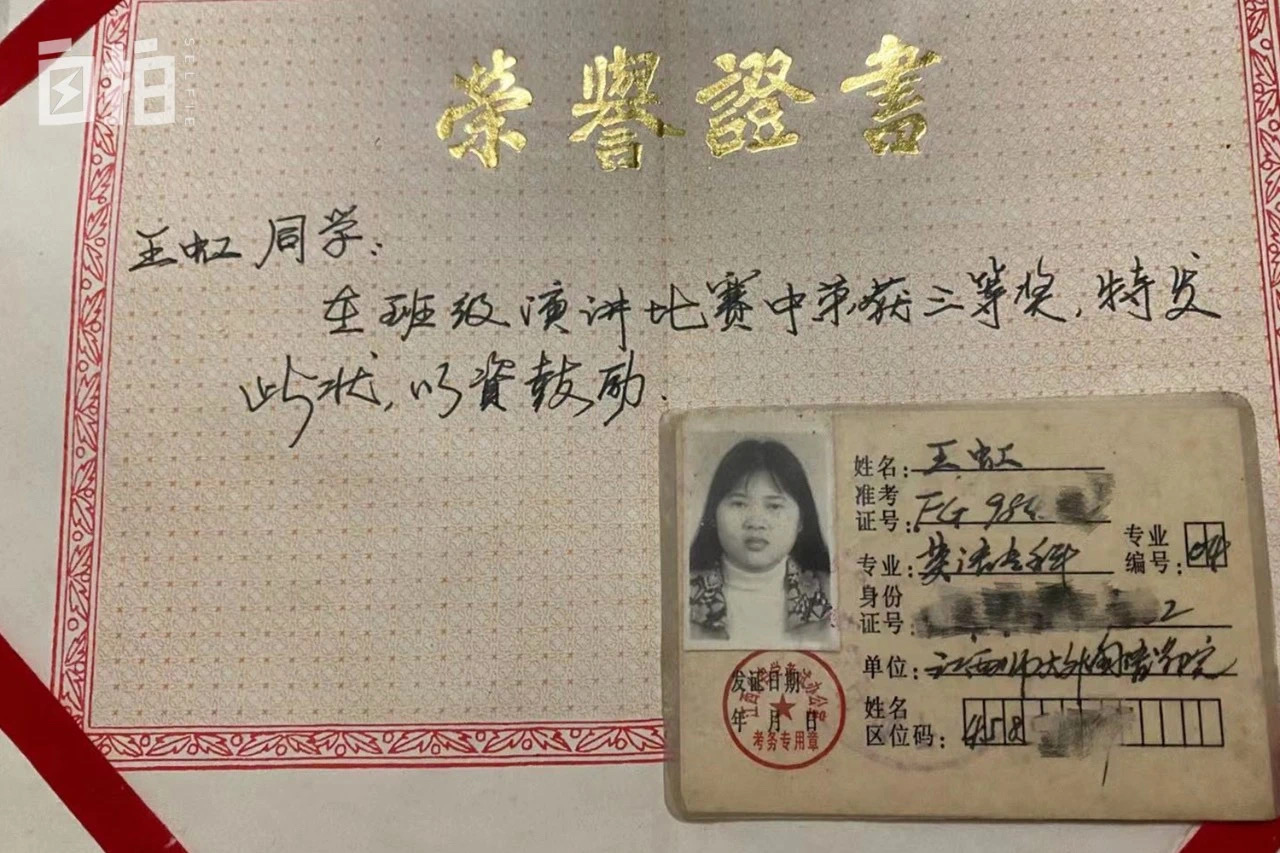 自拍
SELFIE
榮譽證書
王虹 同学:
在班级演讲比赛中荣获三等奖,特发
此状,以资鼓励.
姓名:王虹
准考
证号:FG 98
专业:英语专科
专业
编号:04
身份
证号: 2
单位:江西师大外国语学院
姓名
区位码:458
发证日期
年 月 日
考务专用章